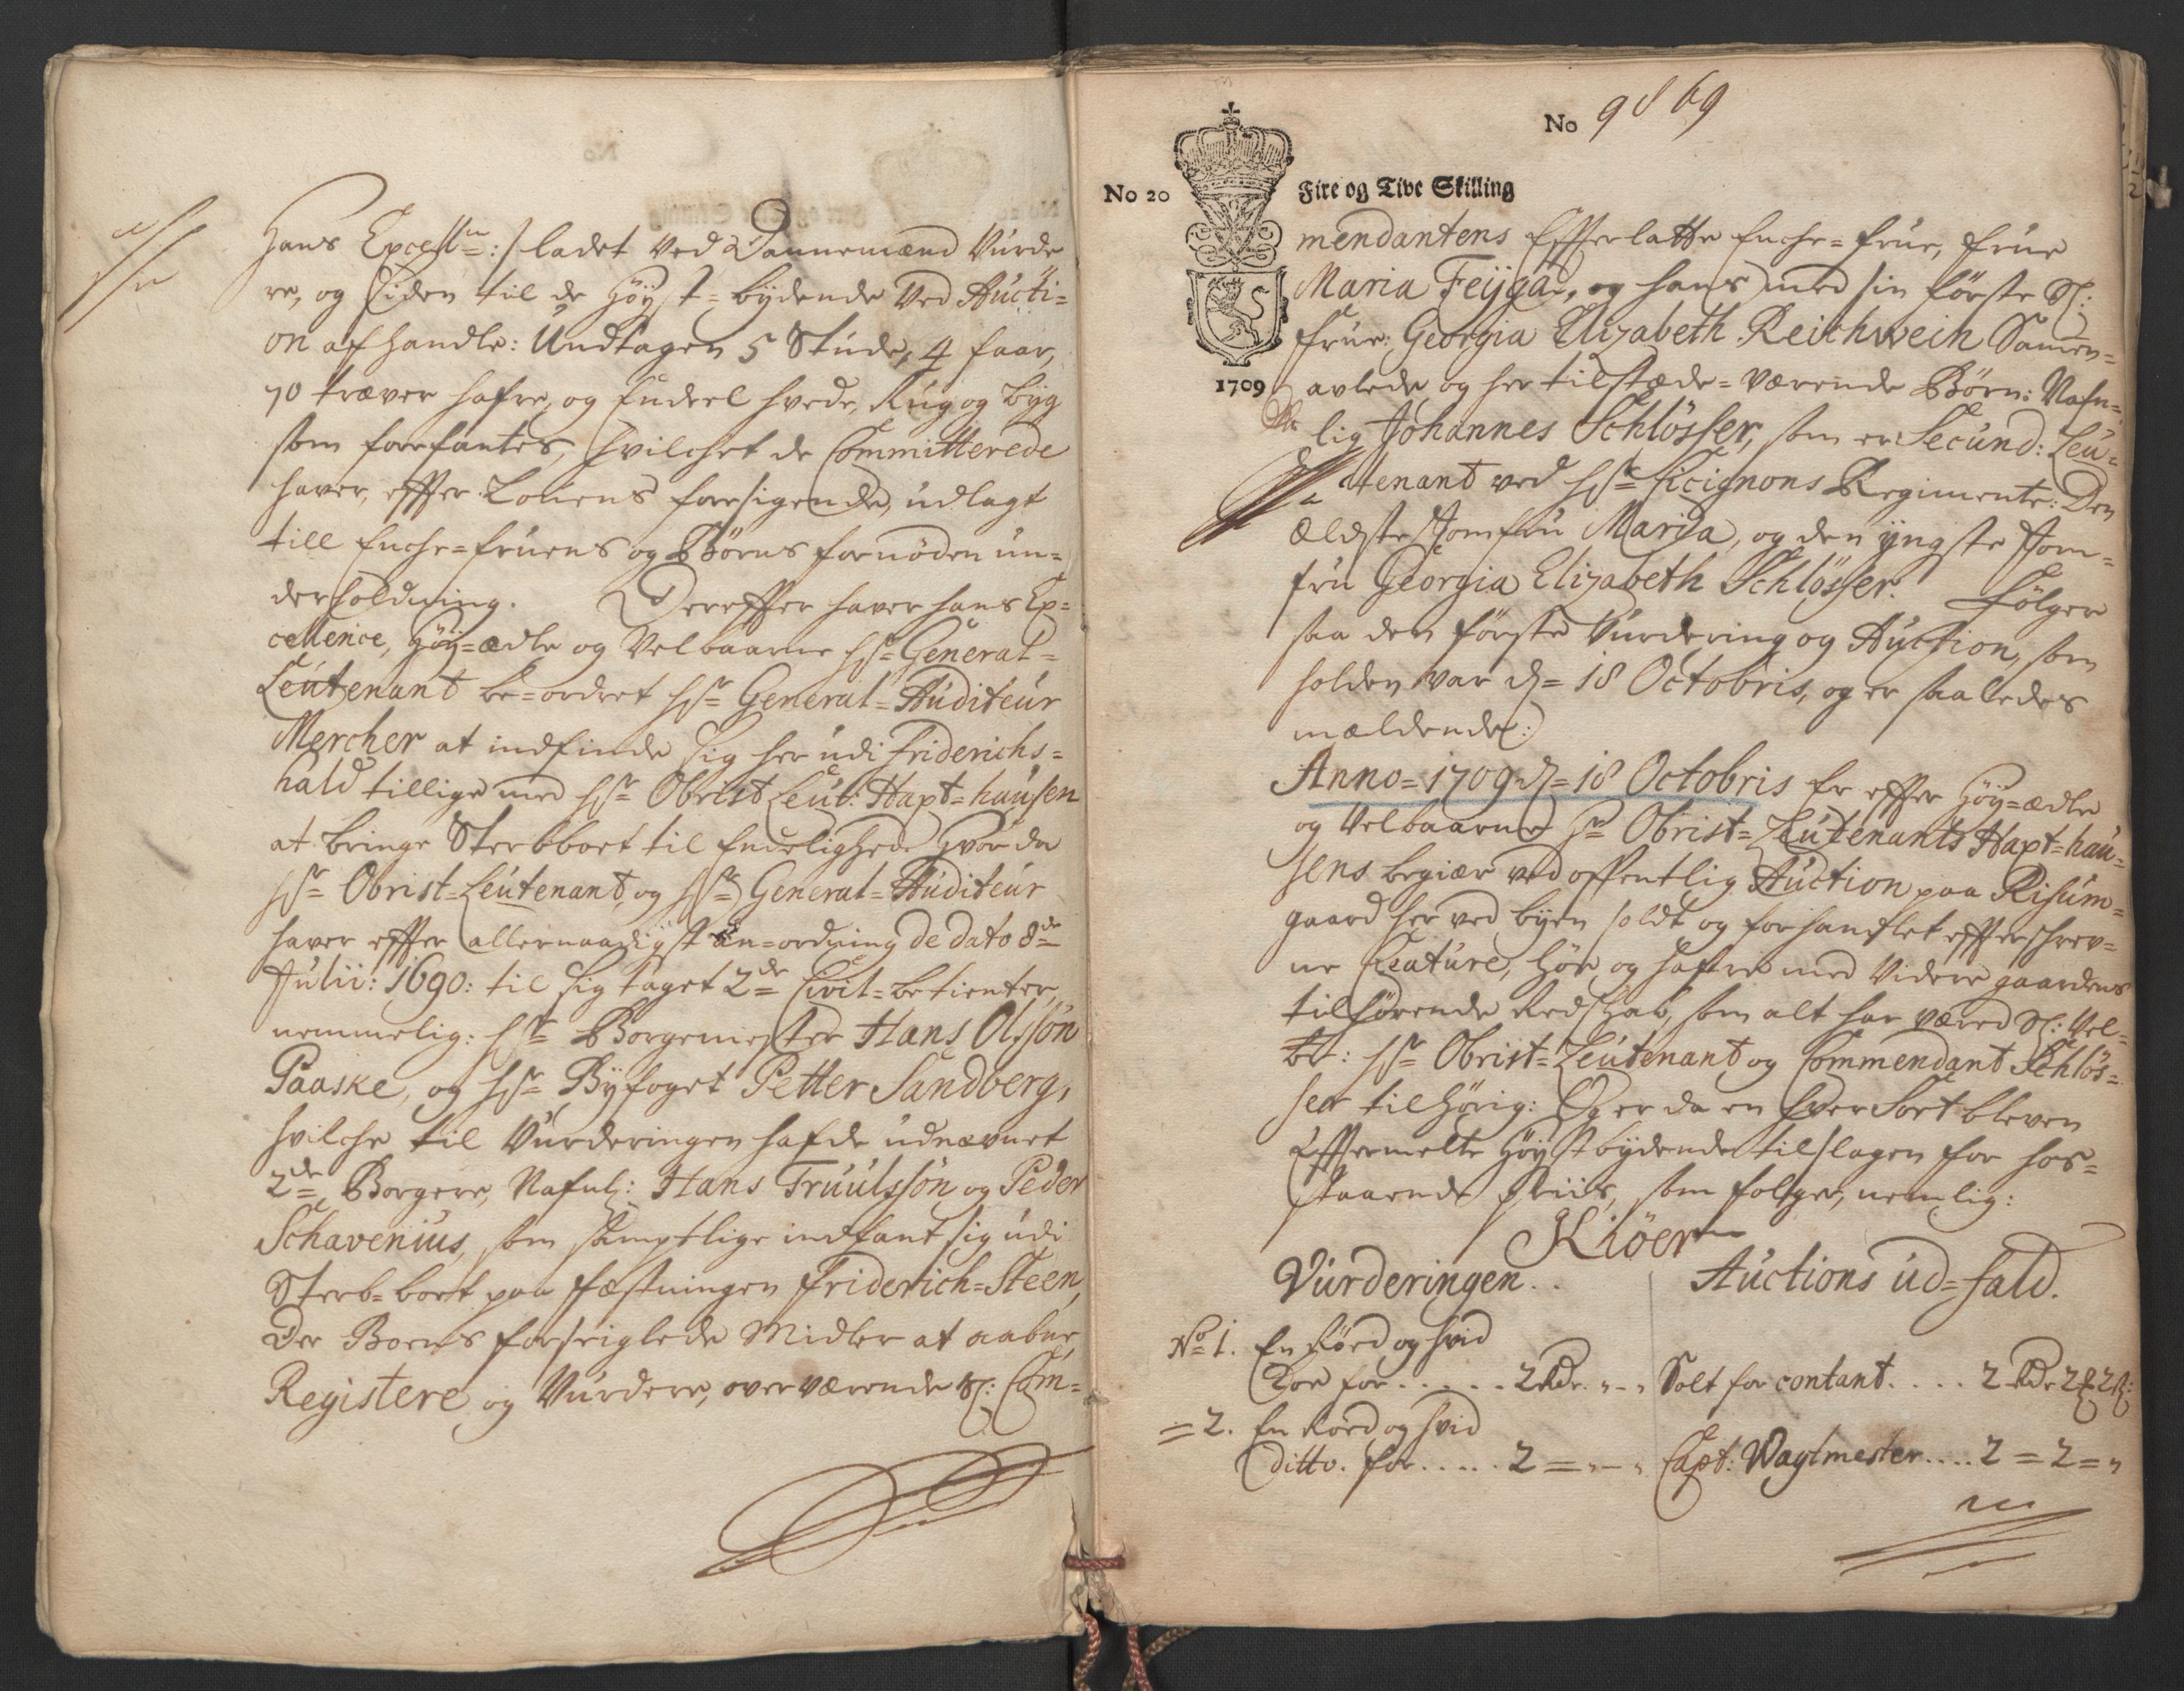 Hans Excell:/ ladet ved Dannemænd Vurde
re, og siden til de Höyst=bydende ved Aucti=
on afhandle: Undtagen 5 Stude, 4 faar,
70 træver hafre, og Endeel hvede, Rug og byg
som forefantes, hvilchet de Committerede
haver, effter Lovens forsigende, udlagt
till Enche=fruens og Börns fornöden un=
derholdning. Dereffter haver hans Ex=
cellence, Höy=ædle og Velbaarne Hr General=
Leutenant be=ordret Hr General=Auditeur
Mercher at indfinde sig her udi Friderichs=
hald tillige med Hr Obrist Leut: Haxt=hausen
at bringe Sterbboet til Endelighed. Hvor da
Hr Obrist=Leutenant, og Hr General=Auditeur
haver effter allernaadigst an=ordning de dato 8de
Julii: 1690: til sig taget 2de Civil=betienter,
nemmelig: Hr Borgemester Hans Olssön
Paaske, og Hr Byfoget Petter Sandberg,
hvilche til Vurderingen hafde udnævnet
2de Borgere, Nafnl: Hans Truulssön og Peder
Schavenius, som samptlige indfant sig udi
Sterb=boet paa fæstningen Friderich=Steen,
Der Boens forseiglede Midler at aabne,
Registere og Vurdere, overværende Sl: Com=
No 9869
No 20
Fire og Tive Skilling
1709
mendantens Effterlatte Enche=frue, frue
Maria Feÿga, og hans med sin förste Sl:
frue: Georgia Elizabeth Reichwein Samen=
avlede, og her tilstæde=værende Börn: Nafn=
lig Johannes Schlösser, som er Secund: Leu=
tenant ved Hr Cicignons Regimente: Den
ældste Jomfru Maria, og den yngste Jom=
fru Georgia Elizabeth Schlösser. Fölger
saa den förste Vurdering og Auction, som
holden var d= 18 Octobris, og er saaledes
mældende:
Anno=1709 d=18 Octobris Er effter Höy=ædle
og Velbaarne Hr Obrist=Leutenants Haxt=hau=
sens begiær ved offentlig Auction paa Risum=
gaard her ved byen soldt og forhandlet effterschrev=
ne Creature, Höe og hafre med videre gaardens
tilhörende Redschab, som alt har væred Sl: Vel=
br: Hr Obrist=Leutenant og Commendant Schlös=
ser tilhörig: Og er da en hver Sort bleven
Effermelte Höystbydende tilslagen for hos=
staaende Priis, som fölger, nemlig:
Kiöer
Vurderingen.. Auctions ud=fald.
No 1. En Röed og hvid
Koe for..... 2 Rdr. „-„ Solt for contant.... 2 Rdr 2 ₰ 2 ß:
= 2. En Röed og hvid
ditto. for..... 2 = „-„ Capt: Wagtmester.... 2 = 2 = „